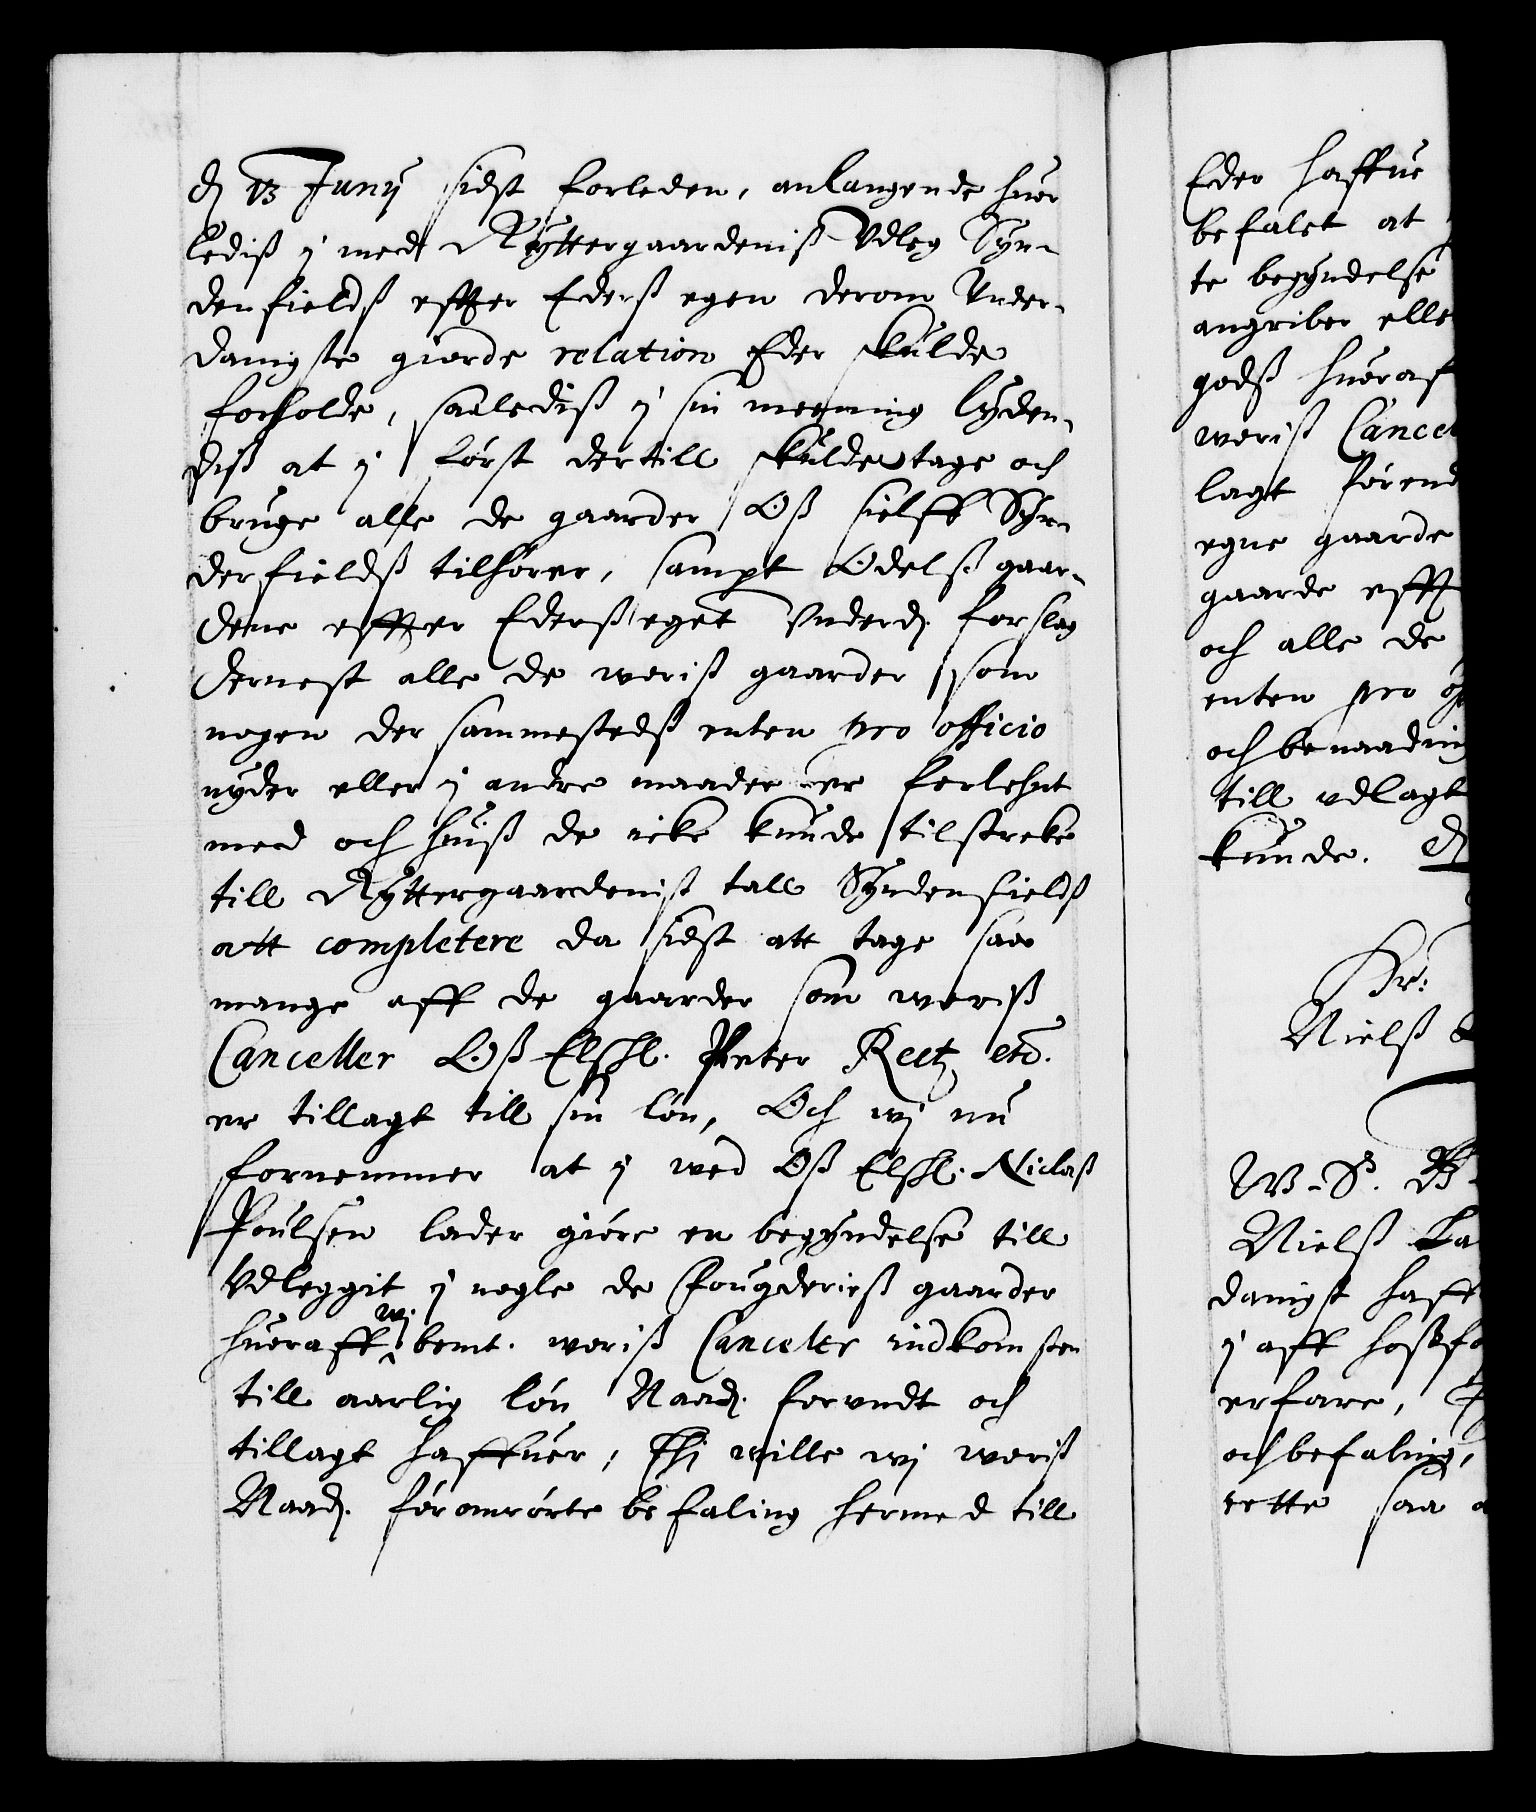 dj 13 Junij sidst forleden, anlangende huor
lediß j med Rÿttergaardeniß Vdleg Syn-
denfieldß effter Ederß egen derom Vnder-
danigste giorde relation Eder skulde
forholde, saalediß j sin meening lÿden-
diß at j først dertill skulde tage och
bruge alle de gaarder Oß sielff Syn-
derfieldß tilhører, sampt Odelß gaar-
dene effter Ederß eget Vnderd. forslag
dernest alle de woriß gaarder som
nogen der sammestedß enten pro officio
nÿder eller j andre maader er forlehnt
med och huiß de icke kunde tilstrecke
till Rÿttergaardeniß tall Sÿndenfieldß
att completere da sidst att tage saa
mange aff de gaarder som woriß
Canceller Oß Elskl. Peter Reetz etc.
er tillagt till sin løn, Och wj nu
fornemmer at j wed Oß Elskl. Niclaß
Poulsen lader giøre en begÿndelse till
Vdleggit j nogle de fougderieß gaarder
hueraff wj bemt. woriß Canceler indkomsten
till aarlig løn Naad. forundt och
tillagt haffuer, Thi wille wj woriß
Naad. føromrørte befaling hermed till
Eder haffue
befalet at
te begÿndelse
angriber elle
godß hueraf
woriß Cancel
lagt førend
egne gaarde
gaarde efft
och alle de
enten pro of
och benaading
till udlagt
kunde. dj
Kr:
Nielß
W. S. B.
Nielß La
danigst haff
j aff hoßfø
erfare,
och befaling,
rette saa a